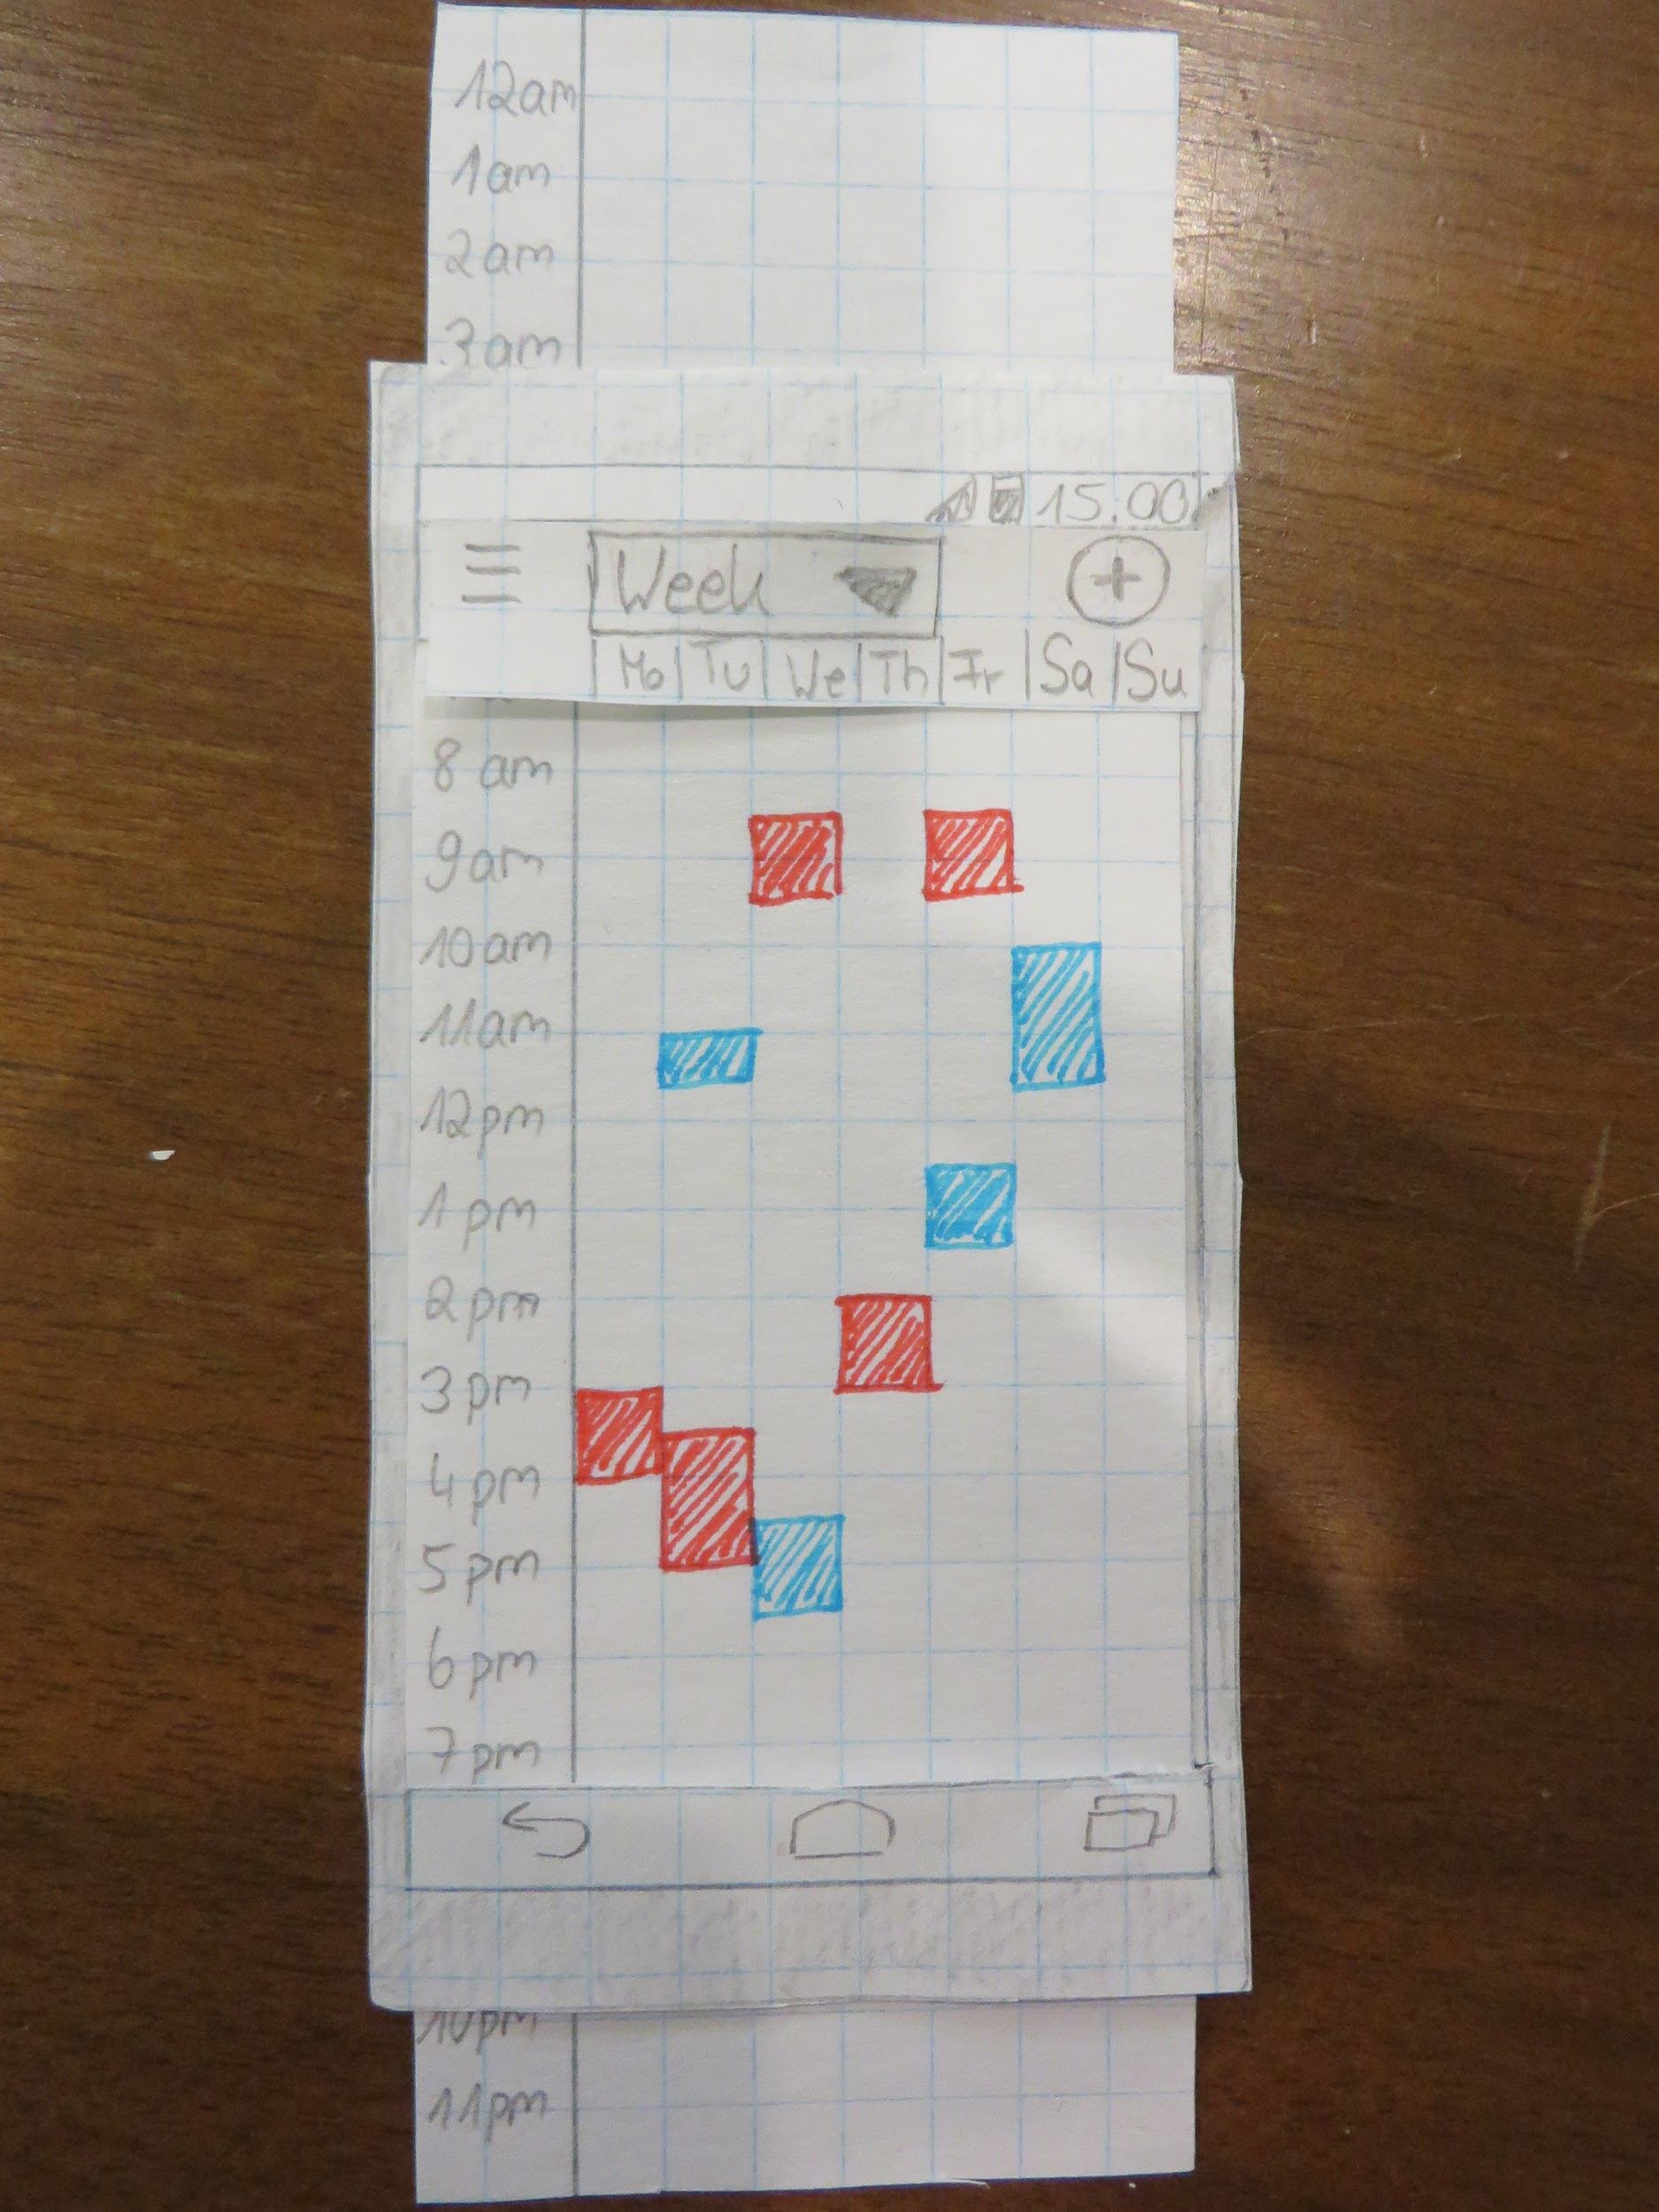 12am
1am
2am
3am
15:00
Week
Mo Tu We Th Fr Sa Su
8 am
9am
10am
11am
12pm
1 pm
2pm
3pm
4pm
5pm
6pm
7pm
10pm
11pm